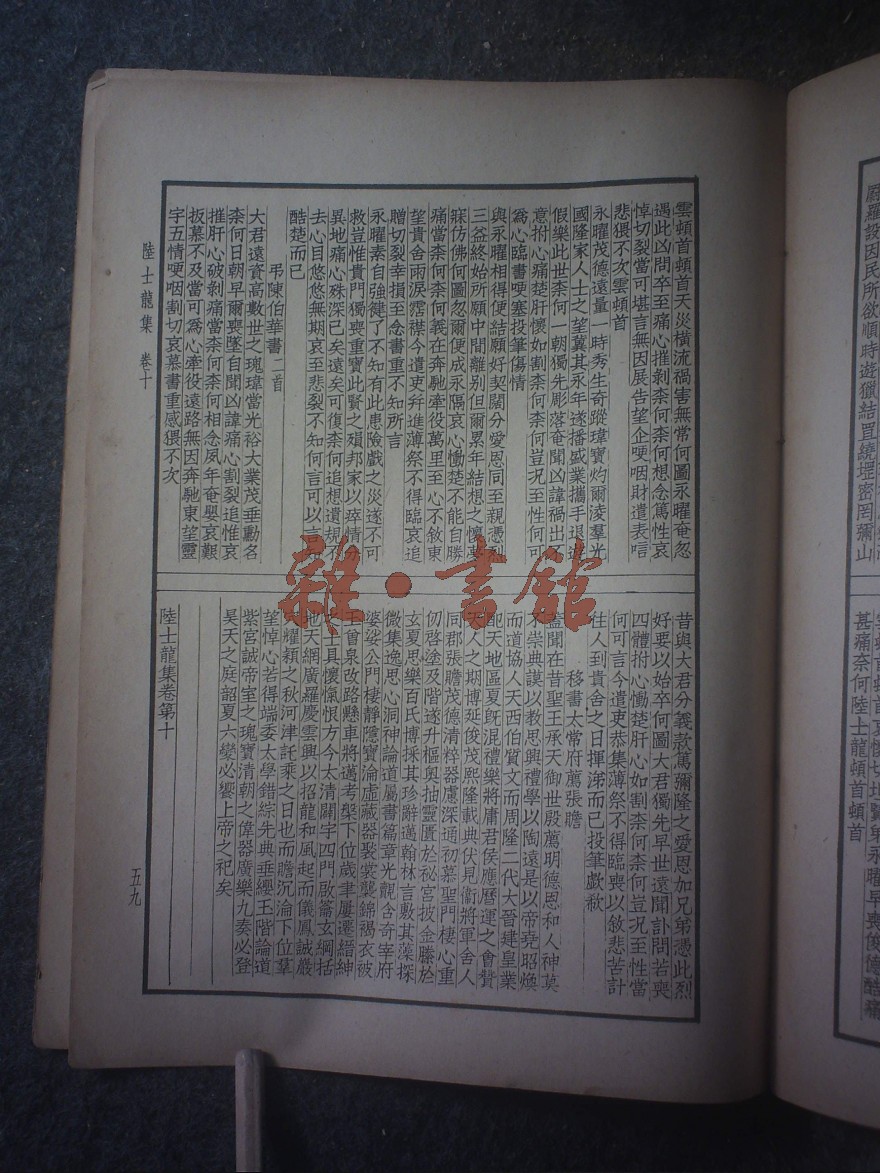 雲頓首頓首天災橫流禍害無常何圖永曜奄忽
遇此凶問卒至痛心摧剝柰何柰何想念篤性哀
悼切裂當可堪言無因展告望企哽咽財遣表唁
悲猥不次雲頓首
永曜茂德遠量一時秀生奇蹤瑋寶灼爾淩羣光
國隆家人士之望冀其永年遂播盛業攜手退遊
假樂此世柰何一朝獨先彫落奄聞凶諱禍出不
意拊心痛楚肝懷如割柰何柰何豈況至性何可
爲心臨書哽塞投筆傷情
與永曜相得便結願好契闊分愛恩同至親憑烈
三益終始所願中間離別但爾累年結想之懷夢
寐仿佛何圖忽爾便成永隔哀心慟楚不能自勝
痛當柰何柰何義在奔馳牽役萬里至心不敘東
望貴舍雨淚霑襟今遣吏并進薄祭不得臨哀追
贈切裂幸損至念書重不知所言
永曜素自強健了不知有此患險戲之災遂不可
救豈惟貴門獨喪重寶此賢之殞邦家以瘁情分
異地痛心殊深已矣遠矣可復柰何追想遺規不
去心目悠悠無期哀至悲裂不知何言可以言
酷楚而已
弔陳伯華書二首
大君遠資高數世之瑰瑋當光裕大業茂垂勳名
柰何日朝早爾喪墜自聞凶諱痛心割裂追惟哀
摧肝心破剝痛當柰何柰何相念夙年奄嬰哀艱
扳慕不及當可爲心牽役遠路無因奔馳東望靈
宇五情哽咽割切哀慕書重感猥不次
昔與大君分義款篤彌隆之愛恩加兄弟憑此烈
好要以始卒何圖大君獨先早世遠聞訃問若喪
四體拊心慟楚肝心如割柰何柰何豈況至性當
何可言今遣吏恭集薄祭不得臨喪以敘悲苦計
往人到貴舍之日揮涕而已投筆歔欷
移書太常府薦張瞻
蓋聞在昔聖王承天御世殷薦明德恩和人神莫
不崇典謨以教思興禮學以陶遠是以帝堯昭煥
而道協人天西伯質文而周隆二代大晉建皇業
配天地區夏旣混禮樂將庸君侯應曆運之會贊
天人之期博延俊茂熙隆載典伏見衞將軍舍人
同郡張瞻茂德清粹器慮深通初慕聖門棲心重
仞啓塗及階遂升樞奧抽靈匱於祕宮披金縢於
玄夏思樂百氏博採其珍辭邁翰林言敷其藻探
微集逸思心洞神論道屬書篇章光覿含奇宰府
婆娑公門棲靜隱寶淪虛藏器褧裳襲錦褐衣被
玉曾泉改路懸車將邁考槃下位歲聿屢遷搢紳
之士具懷愾恨方今太清闢宇四門啟籥玄綱括
地天網廣羅慶雲興以招龍和風起而儀鳳誠巖
穴耀穎之秋河津託乘之日也而瞻沉淪下位羣
望悼心若得端委太學錯綜先典垂纓玉階論道
紫宮誠帝室之瑰寶清朝之偉器廣樂九奏必登
昊天之庭韶夏六變必饗上帝之祀矣
陸士龍集卷第十
陸士龍集 卷十
五九
雜·書館
罻羅設因民所欲順時遊獵結罝繞堽密罔彌山
甚痛奈何陸士龍頓首頓首